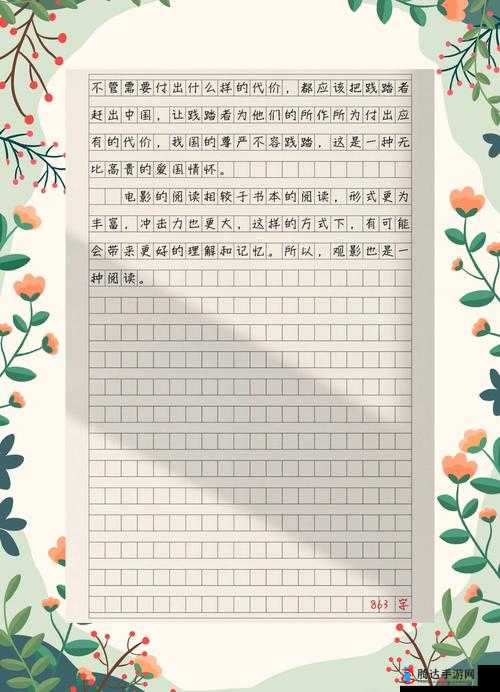 不管需要付出什么样的代价，都应该把践踏者
赶出中国，让践踏者为他们的所作所为付出应
有的代价，我国的尊严不容践踏，这是一种无
比高贵的爱国情怀。
电影的阅读相较于书本的阅读，形式更为
丰富，冲击力也更大，这样的方式下，有可能
会带来更好的理解和记忆。所以，观影也是一
种阅读。
863 字
腾达手游网